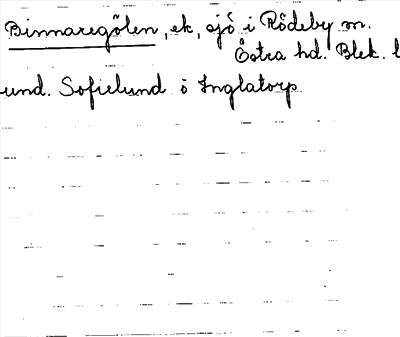 Binnaregölen, ek, sjö i Rödeby sn.
Östra hd. Blek. l
und. Sofielund o Inglatorp